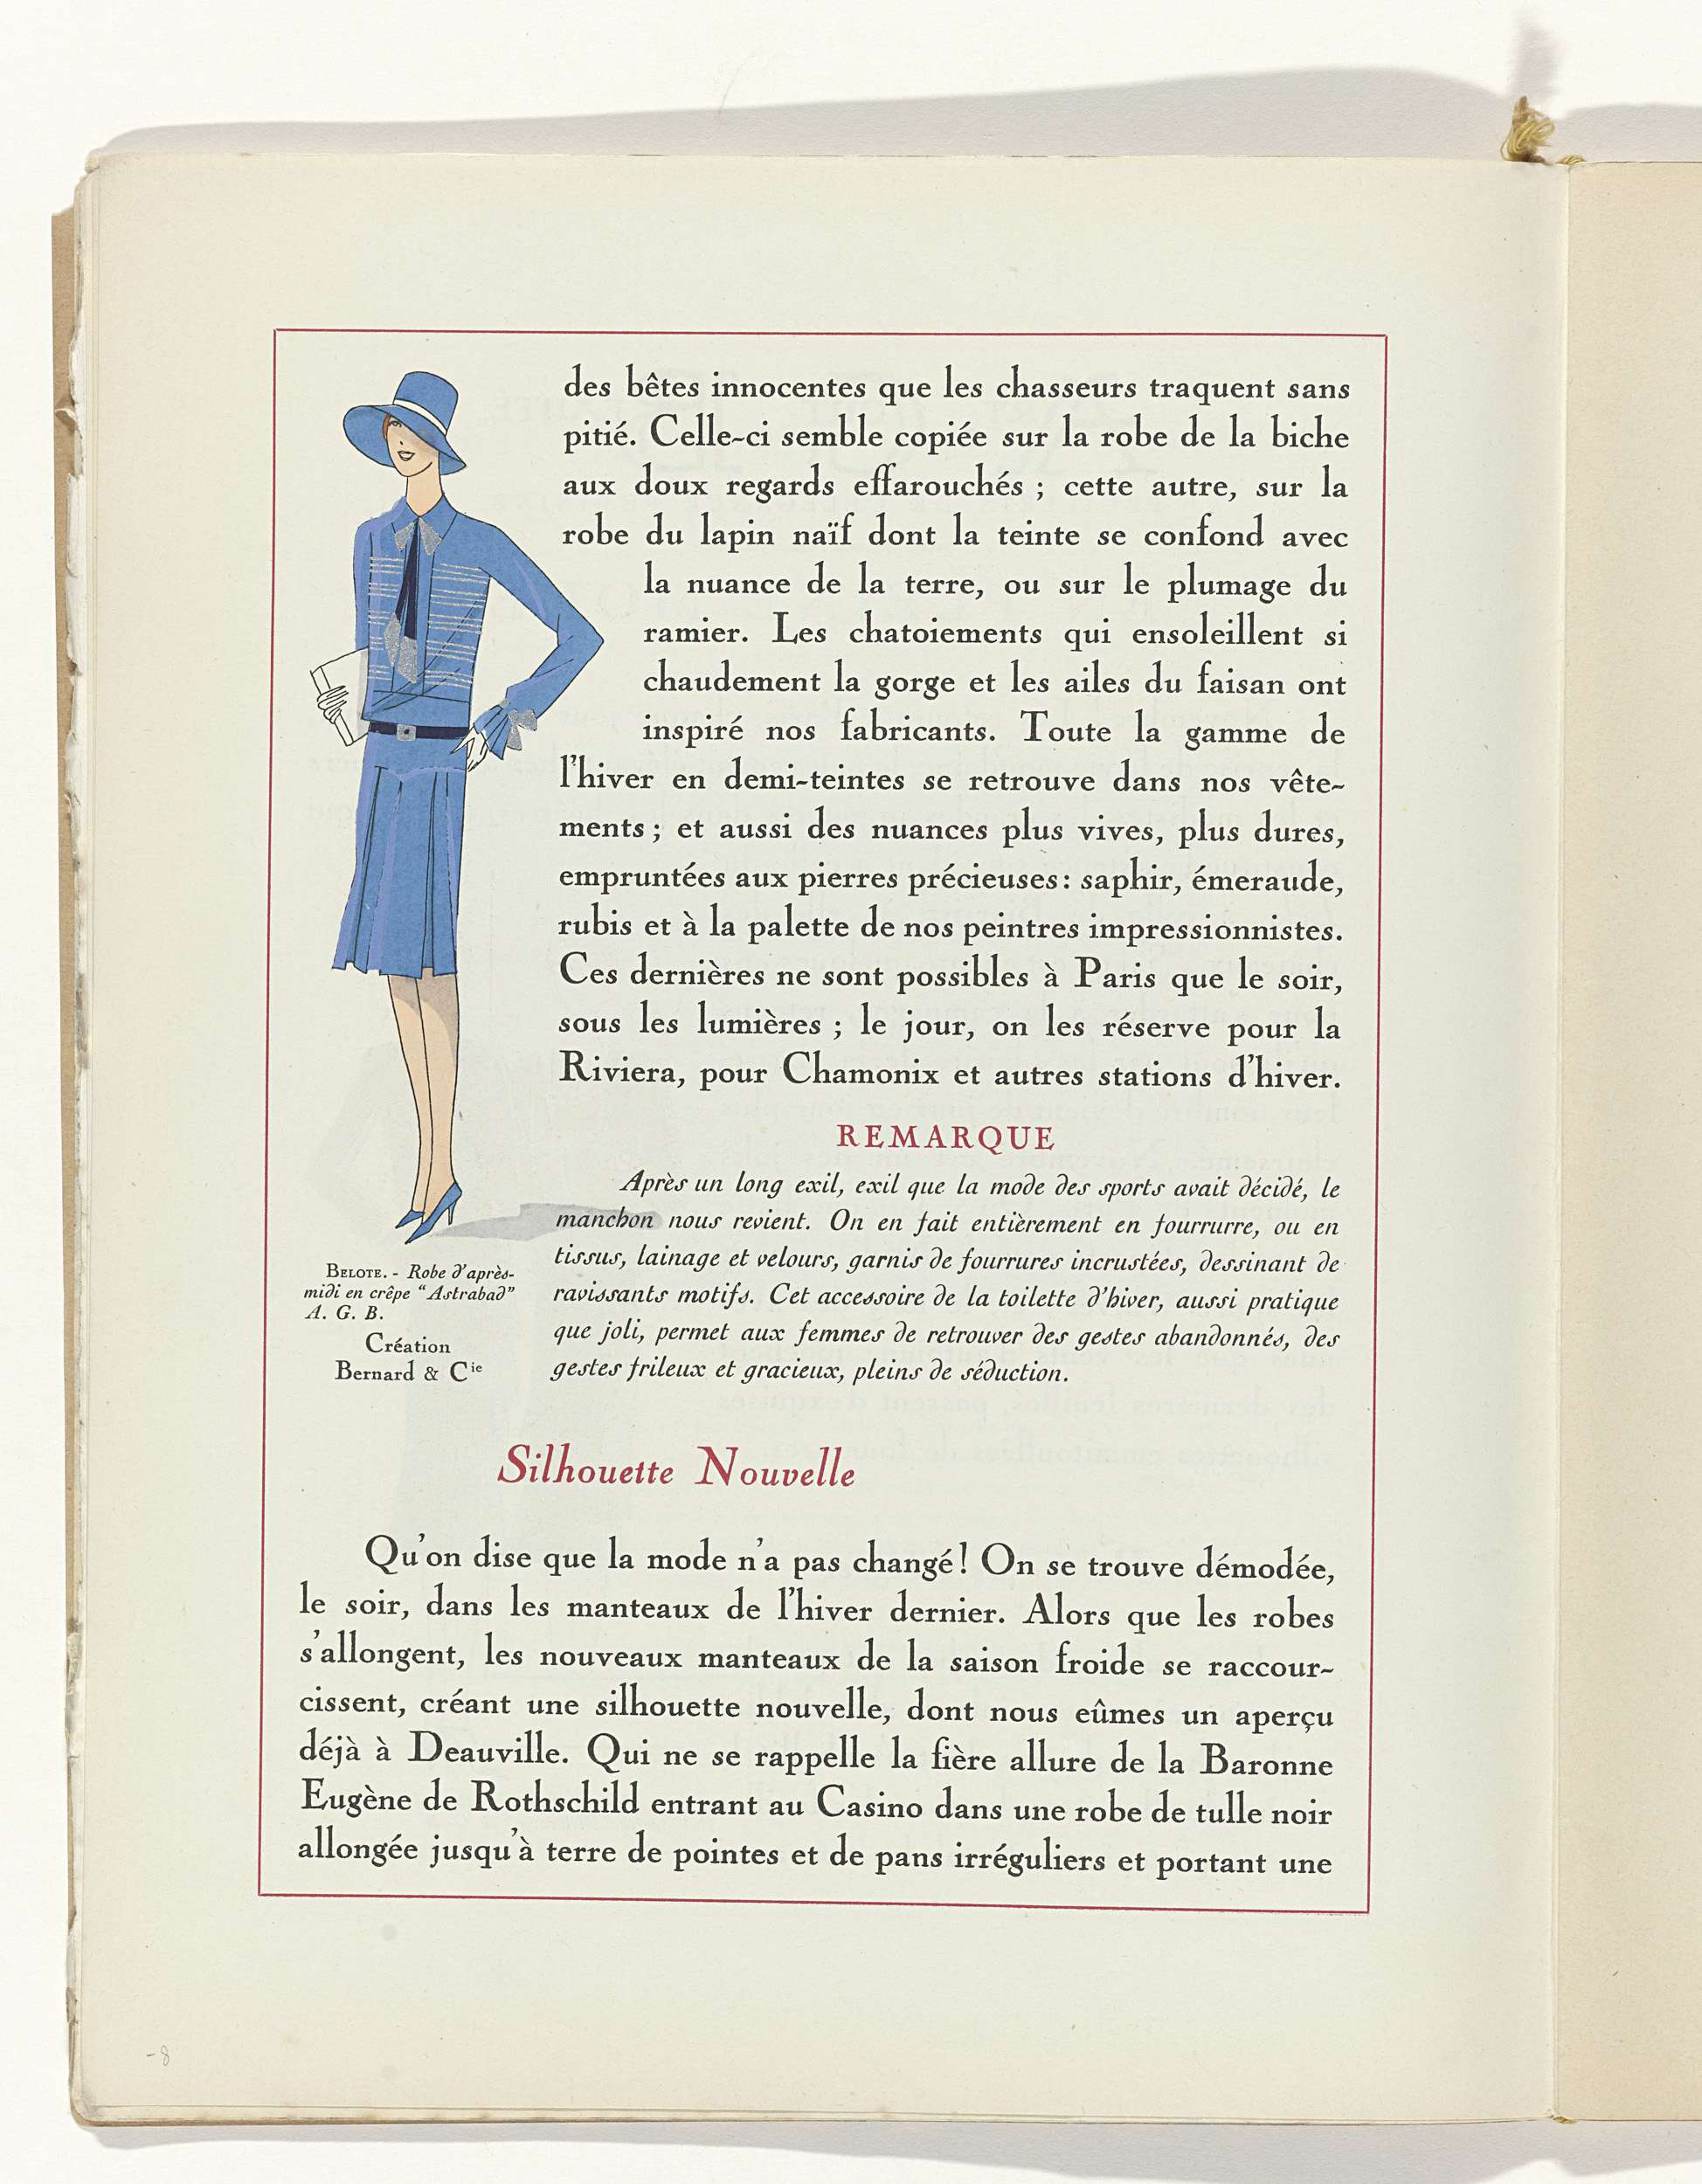 des bêtes innocentes que les chasseurs traquent sans
pitié. Celle-ci semble copiée sur la robe de la biche
aux doux regards effarouchés ; cette autre, sur la
robe du lapin naïf dont la teinte se confond avec
la nuance de la terre, ou sur le plumage du
ramier. Les chatoiements qui ensoleillent si
chaudement la gorge et les ailes du faisan ont
inspiré nos fabricants. Toute la gamme de
l'hiver en demi-teintes se retrouve dans nos vête-
ments ; et aussi des nuances plus vives, plus dures,
empruntées aux pierres précieuses : saphir, émeraude,
rubis et à la palette de nos peintres impressionnistes.
Ces dernières ne sont possibles à Paris que le soir,
sous les lumières ; le jour, on les réserve pour la
Riviera, pour Chamonix et autres stations d'hiver.
REMARQUE
Après un long exil, exil que la mode des sports avait décidé, le
manchon nous revient. On en fait entièrement en fourrurre, ou en
tissus, lainage et velours, garnis de fourrures incrustées, dessinant de
ravissants motifs. Cet accessoire de la toilette d'hiver, aussi pratique
que joli, permet aux femmes de retrouver des gestes abandonnés, des
gestes frileux et gracieux, pleins de séduction.
BELOTE. - Robe d'après-
midi en crêpe "Astrabad"
A. G. B.
Création
Bernard & Cie
Silhouette Nouvelle
Qu'on dise que la mode n'a pas changé! On se trouve démodée,
le soir, dans les manteaux de l'hiver dernier. Alors que les robes
s'allongent, les nouveaux manteaux de la saison froide se raccour-
cissent, créant une silhouette nouvelle, dont nous eûmes un aperçu
déjà à Deauville. Qui ne se rappelle la fière allure de la Baronne
Eugène de Rothschild entrant au Casino dans une robe de tulle noir
allongée jusqu'à terre de pointes et de pans irréguliers et portant une
-8